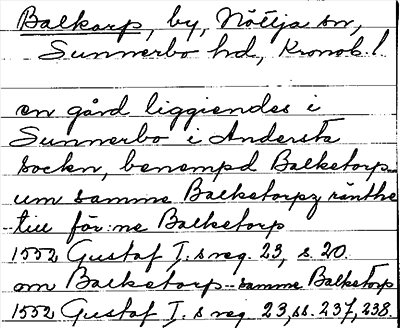 Balkarp, by, Nöttja sn,
Sunnerbo hd, Kronob. l
en gård liggiendes i
Sunnerbo i Andersta
sockn, benempd Balketorp --
um samme Balketorpz ränthe
-- till för:ne Balketorp
1552 Gustaf I:s reg. 23, s. 20.
om Balketorp -- samme Balketorp
1552 Gustaf I:s reg. 23, ss. 237, 238.